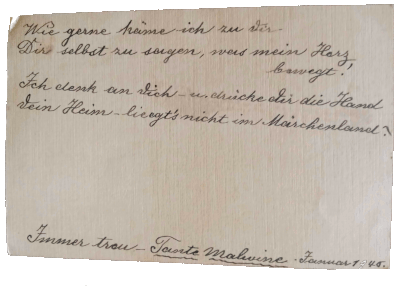 Wie gerne käme ich zu dir
Dir selbst zu sagen, was mein Herz
bewegt!
Ich denk an dich – u. drücke dir die Hand
Dein Heim – liegt's nicht im Märchenland?
Immer treu – Tante Malwine – Januar 1. 45.